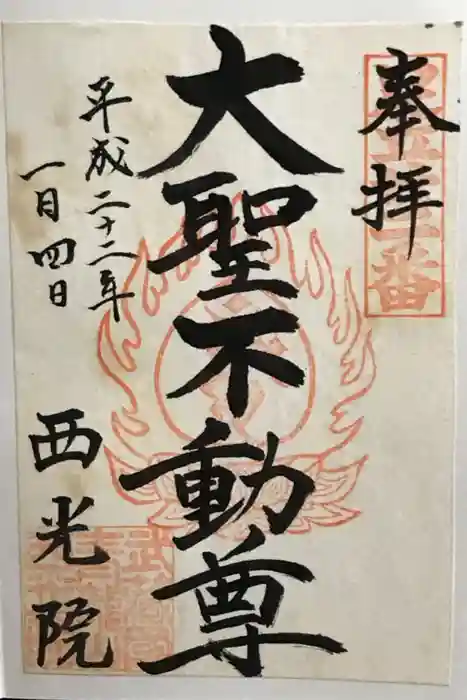 奉拝
大聖不動尊
平成二十二年
一月四日
西光院